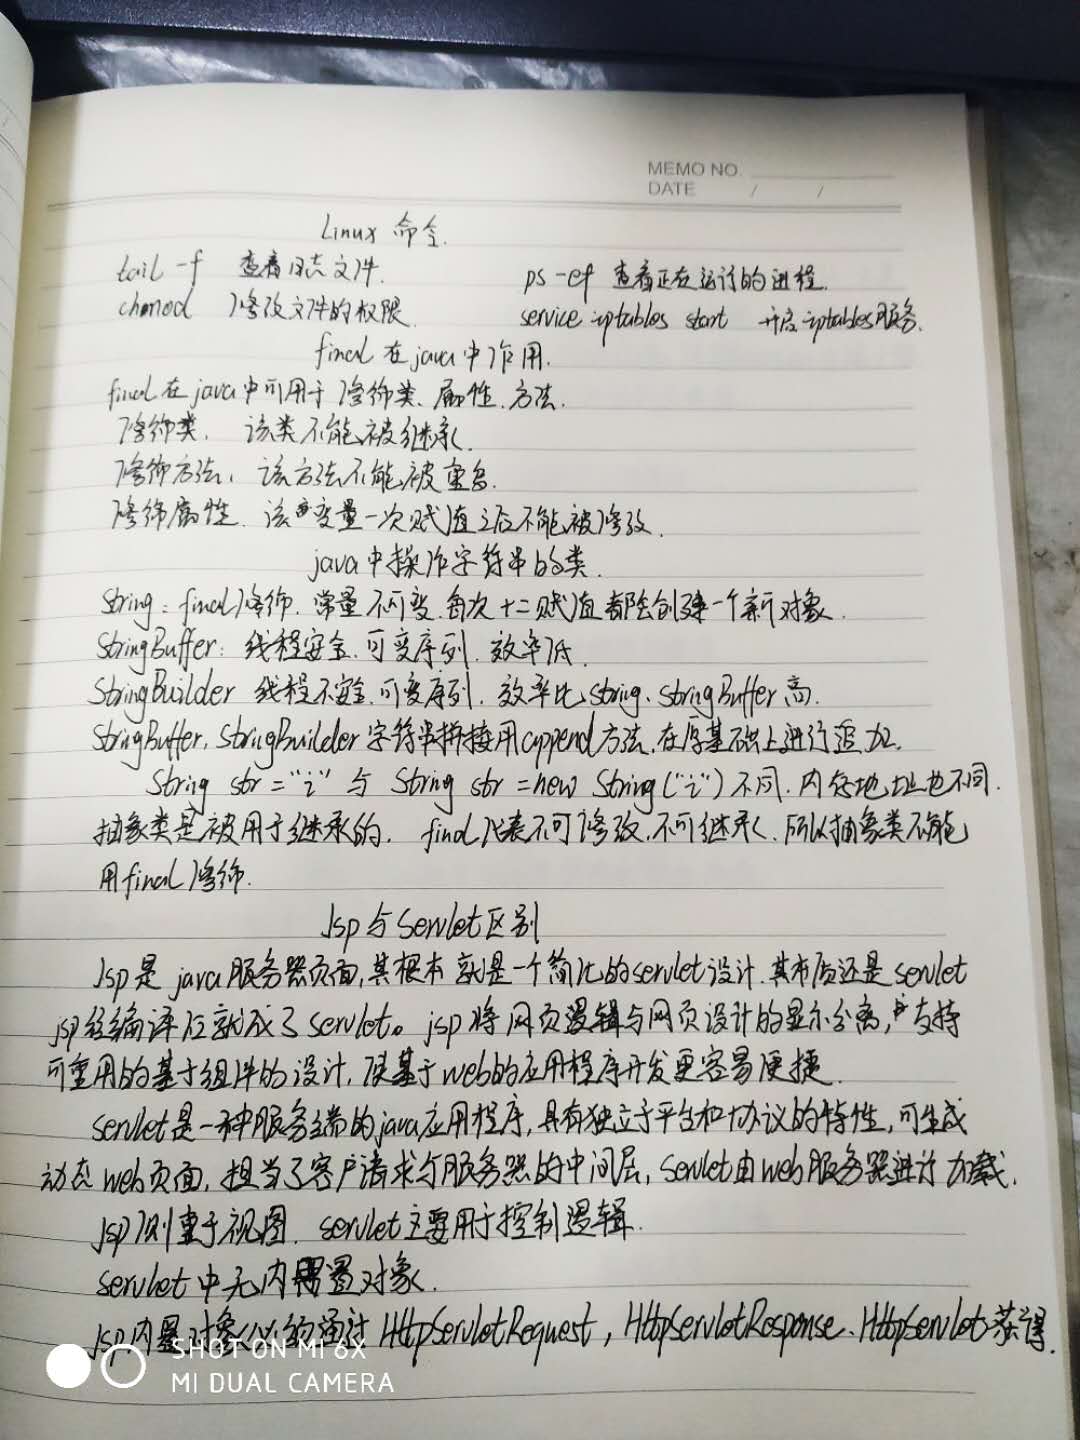 MEMO NO.
DATE / /
Linux 命令.
tail -f 查看日志文件. ps -ef 查看正在运行的进程.
chmod 修改文件的权限. service iptables start 开启iptables服务.
final 在java中作用.
final在java中可用于修饰类、属性、方法.
修饰类, 该类不能被继承.
修饰方法, 该方法不能被重写.
修饰属性, 该变量一次赋值之后不能被修改.
java中操作字符串的类.
String: final修饰. 常量不可变. 每次 赋值都会创建一个新对象.
StringBuffer: 线程安全. 可变序列. 效率低.
StringBuilder 线程不安全. 可变序列. 效率比String、StringBuffer高.
StringBuffer, StringBuilder字符串拼接用append方法, 在原基础上进行追加.
String str="i" 与 String str =new String("i") 不同. 内存地址也不同.
抽象类是被用于继承的. final代表不可修改, 不可继承. 所以抽象类不能
用final修饰.
Jsp与Servlet区别
Jsp是java服务器页面,其根本就是一个简化的servlet设计.其本质还是servlet
jsp经编译后就成了servlet。jsp将网页逻辑与网页设计的显示分离,支持
可重用的基于组件的设计,使基于web的应用程序开发更容易便捷.
servlet是一种服务端的java应用程序,具有独立于平台和协议的特性,可生成
动态web页面, 担当了客户请求与服务器的中间层, servlet由web服务器进行加载.
jsp侧重于视图. servlet主要用于控制逻辑.
servlet中无内置对象.
jsp内置对象 通过HttpServletRequest, HttpServletResponse、HttpServlet获得.
SHOT ON MI 6X
MI DUAL CAMERA